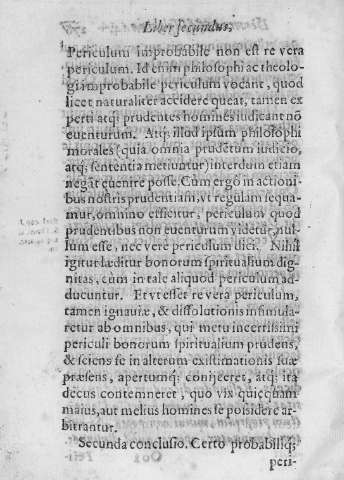 Liber secundus,
Periculum improbabile non est re vera
periculum. Id enim philosophi ac theolo-
gi improbabile periculum vocant, quod
licet naturaliter accidere queat, tamen ex
perti atq; prudentes homines iudicant nō
euenturum. Atq; illud ipsum philosophi
morales (quia omnia prudētum iudicio,
atq; sententia metiuntur) interdum etiam
negāt euenire posse. Cùm ergo in actioni-
bus nostris prudentiam, vt regulam sequa-
mur, omnino efficitur, periculum quod
prudentibus non euenturum videtur, nul-
lum esse, nec vere periculum dici. Nihil
igitur læditur bonorum spiritualium dig-
nitas, cum in tale aliquod periculum ad-
ducuntur. Et vt esset re vera periculum,
tamen ignauiæ, & dissolutionis insimula-
retur ab omnibus, qui metu incertissimi
periculi bonorum spiritualium prudens,
& sciens se in alterum existimationis suæ
præsens, apertumq; conijceret, atq; ita
decus contemneret, quo vix quicquam
maius, aut melius homines se possidere ar-
bitrantur.
Secunda conclusio. Certo probabiliq;
peri-